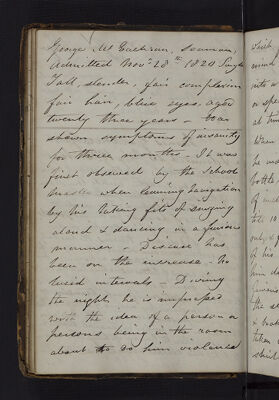 George Mc Eachran, Seaman,
Admitted Novr. 28th 1820 Single
Tall, slender, fair complexion
fair hair, blue eyes, aged
twenty three years - has
shewn symptoms of insanity
for three months - It was
first observed by the School
master when learning navigation
by his taking fits of singing
aloud & dancing in a furious
manner - Disease has
been on the increase - No
lucid intervals - During
the night he is impressed
with the idea of a person or
persons being in the room
about to do him violence
which
mind
into
at
When
he
bottle
of
of his
him
the
taken